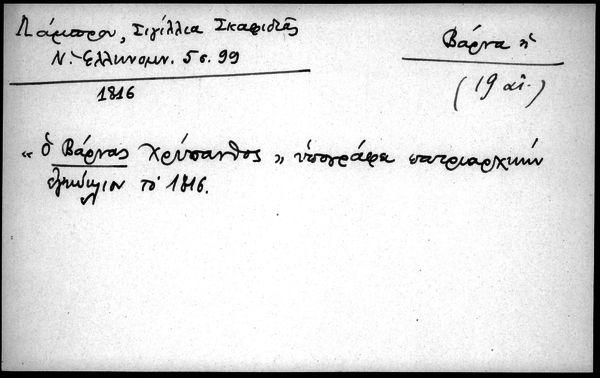 Λάμπρου, Σιγίλλια Σκαφιδιᾶς
Ν. Ἑλληνομν. 5 σ. 99
1816
Βάρνα ἡ
(19 αἰ.)
« ὁ Βάρνας Χρύσανθος » ὑπογράφει πατριαρχικὴν
ἐγκύκλιον τὸ 1816.